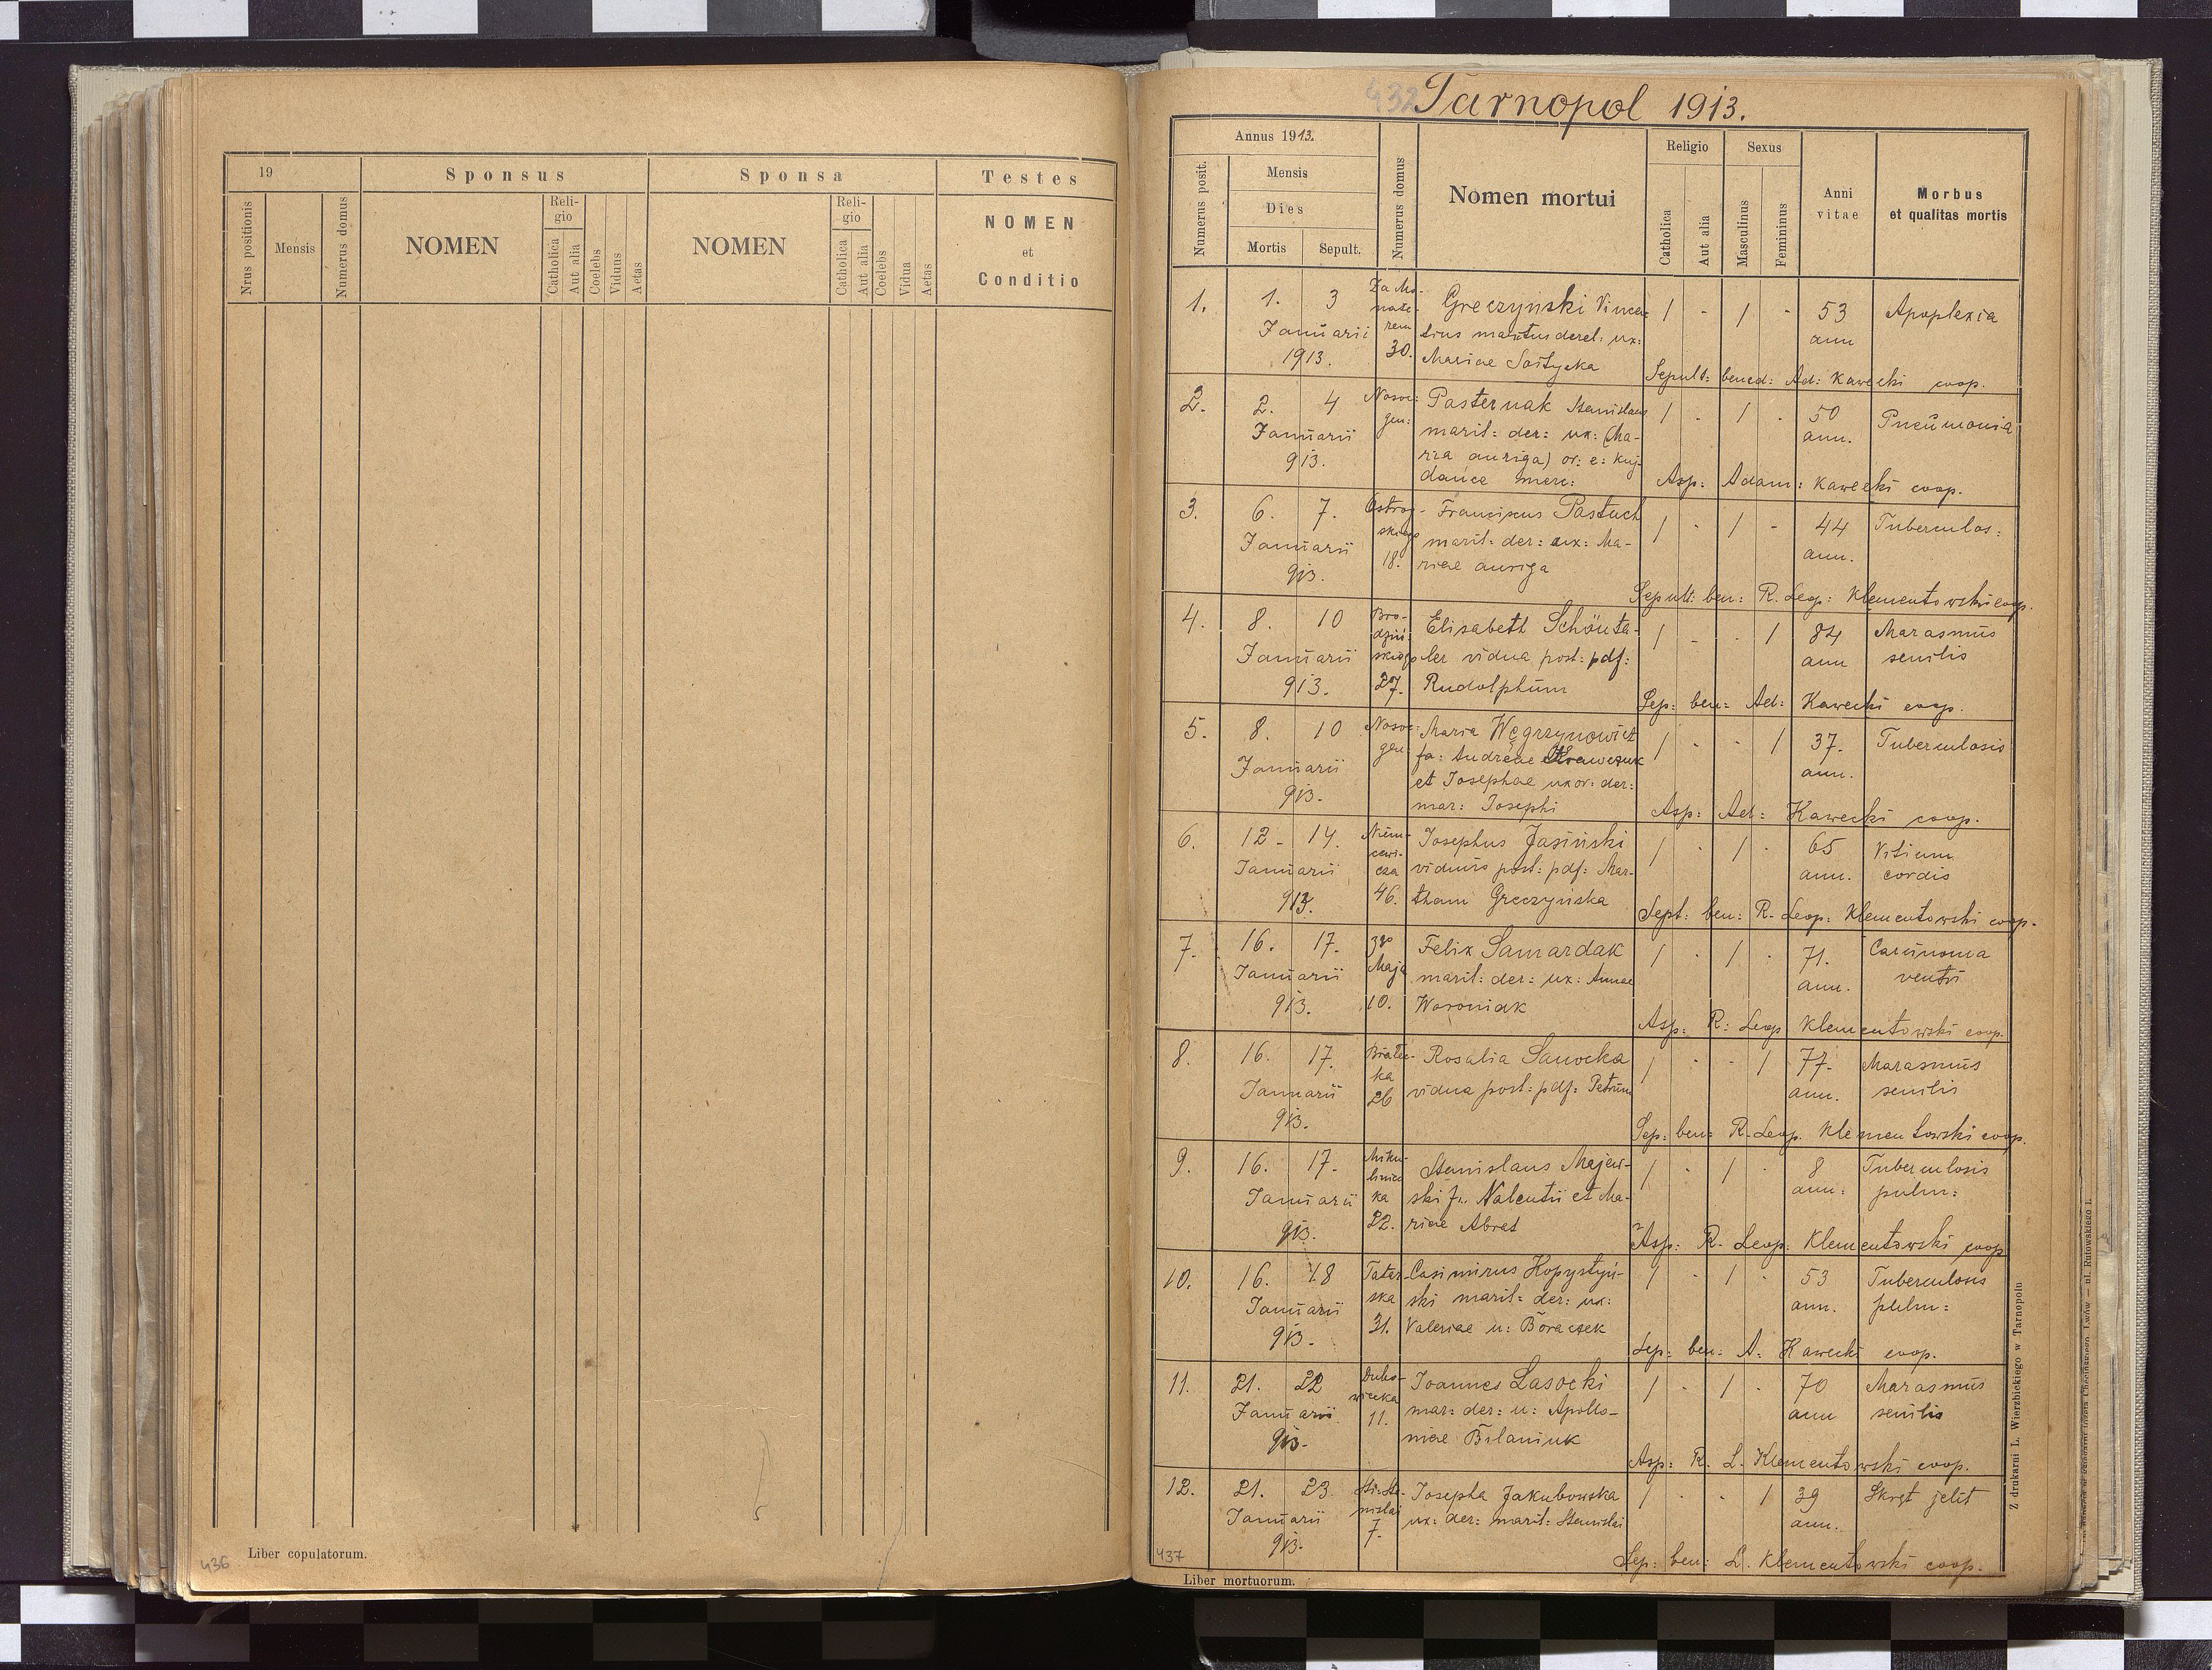 19
Sponsus
Sponsa
Testes
Nrus positionis
Mensis
Numerus domus
NOMEN
Reli-
gio
Catholica
Aut alia
Coelebs
Viduus
Aetas
NOMEN
Reli-
gio
Catholica
Aut alia
Coelebs
Vidua
Aetas
NOMEN
et
Conditio
Liber copulatorum.
436
432 Tarnopol 1913.
Numerus posit.
Annus 1913.
Mensis
Dies
Mortis Sepult.
Numerus domus
Nomen mortui
Religio
Catholica
Aut alia
Sexus
Masculinus
Femininus
Anni
vitae
Morbus
et qualitas mortis
1. 1. 3
Januarii
1913.
Za Mo-
naste-
rem
30.
Greczynski Vincen=
tius maritus derel: ux:
Mariae Sottycka
1 - 1 - 53
ann
Apoplexia
Sepult: bened: Ad: Kawecki coop.
2. 2. 4
Januarii
913.
Pasternak Stanislaus
marit: der: ux: (Ma-
ria auriga) or: e: Kuj-
dance merc:
1 - 1 - 50
ann.
Pneumonia
Asp: Adam: Kawecki coop.
3. 6. 7.
Januarii
913.
Ostrog-
skiego
18.
Franciscus Pastuch
marit: der: ux: Ma-
riae auriga
1 - 1 - 44
ann.
Tuberculos:
Sepult: ben: R. Leop: Klementowski coop.
4. 8. 10
Januarii
913.
Bro-
dziń-
skiego
27.
Elisabeth Schönta-
ler vidua post: pdf:
Rudolphum
1 - - 1 84
ann
Marasmus
senilis
Sep: ben: Ad: Kawecki coop.
5. 8. 10
Januarii
913.
Maria Węgrzynowicz
fa: Andreae Krawczuk
et Josephae uxor: der:
mar: Josephi
1 - - 1 37.
ann.
Tuberculosis
Asp: Ad: Kawecki coop.
6. 12- 14.
Januarii
913.
Niem-
cewi-
cza
46.
Josephus Jasiński
viduus post: pdf: Mar-
tham Greczyńska
1 - 1 - 65
ann.
Vitium
cordis
Sept: ben: R. Leop: Klementowski coop.
7. 16. 17.
Januarii
913.
3go
Maja
10.
Felix Samardak
marit: der: ux: Annae
Woroniak
1 - 1 - 71.
ann.
Carcinoma
ventri
Asp: R: Leop Klementowski coop.
8. 16. 17.
Januarii
913.
26
Rosalia Sanocka
vidua post: pdf: Petrum
1 - - 1 77.
ann.
Marasmus
senilis
Sep: ben: R. Leop. Klementowski coop.
9. 16. 17.
Januarii
913.
Miku-
liniec
ka
22.
Stanislaus Majew-
ski f. Valentii et Ma-
riae Abrat
1 - 1 - 8
ann:
Tuberculosis
pulm:
Asp: R. Leop: Klementowski coop
10. 16. 18
Januarii
913.
Tatar-
ska
31.
Casimirus Kopystyń-
ski marit: der: ux:
Valeriae n: Boraczek
1 - 1 - 53
ann.
Tuberculosis
pulm:
Sep: ben: A: Kawecki coop.
11. 21. 22
Januarii
913.
11.
Joannes Lasocki
mar: der: u: Apollo-
niae Bilaniuk
1 - 1 - 70
ann
Marasmus
senilis
Asp: R. L. Klementowski coop.
12. 21. 23
Januarii
913.
Sti: Sta-
nislai
7.
Josepha Jakubowska
ux: der: marit: Stanislai
1 - - 1 39
ann.
Skręt jelit
Sep: ben: L. Klementowski coop.
437
Liber mortuorum.
Z drukarni L. Wierzbickiego w Tarnopolu